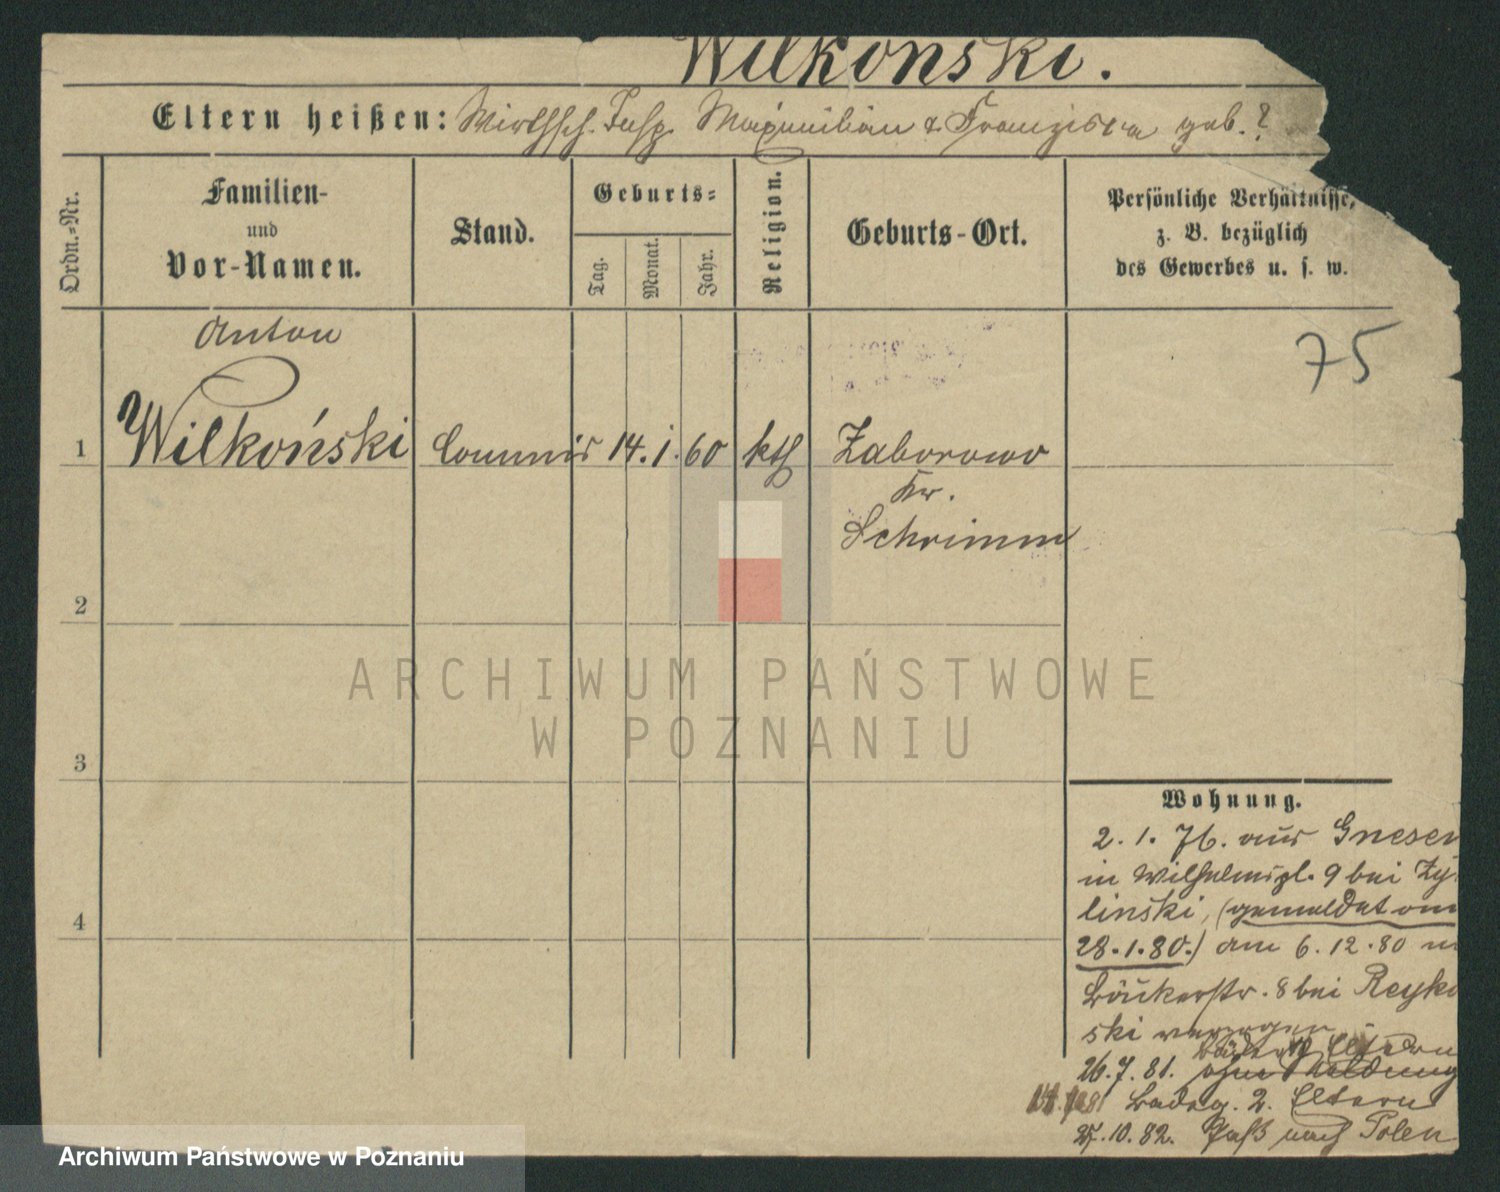 Wilkonski.
Eltern heißen: Wirthsch. Insp. Maximilian & Franziska geb. ?
Ordn.=Nr.
Familien-
und
Vor-Namen.
Stand.
Geburts=
Tag.
Monat.
Jahr.
Religion.
Geburts-Ort.
Persönliche Verhältnisse,
z. B. bezüglich
des Gewerbes u. s. w.
Anton
75
1 Wilkoński Commis 14. 1. 60 kth Zaborowo
Kr.
Schrimm
2
ARCHIWUM PAŃSTWOWE
W POZNANIU
3
Wohnung.
2. 1. 76. aus Gnesen
in Wilhelmspl. 9 bei Zy
linski, (gemeldet am
28.1.80.) am 6.12.80 n
8 bei Reyko
ski verzogen
Eltern
26.7.81. ohne Meldung
2. Eltern
10.82. Paß nach Polen
4
Archiwum Państwowe w Poznaniu